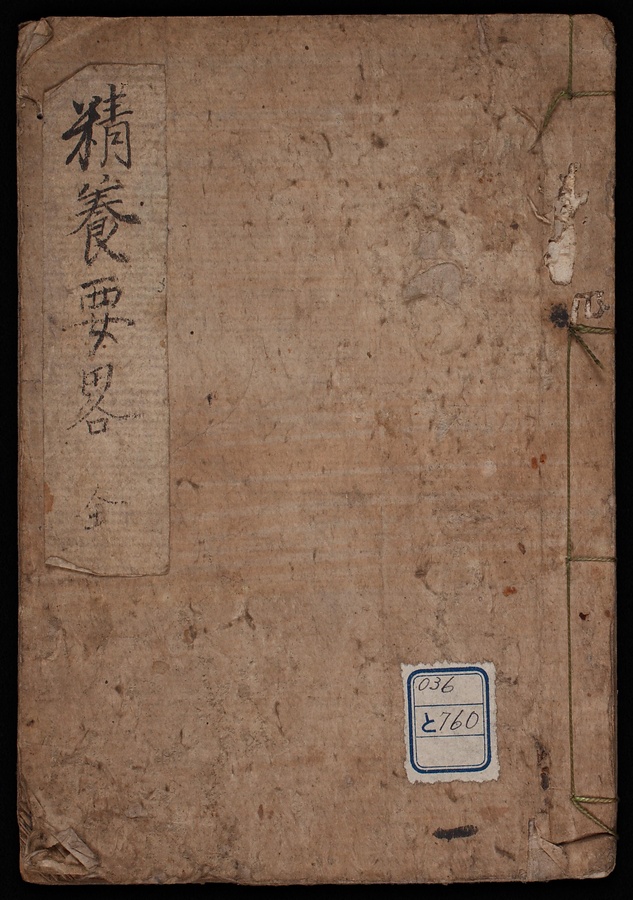 精養要畧 全
036
と760